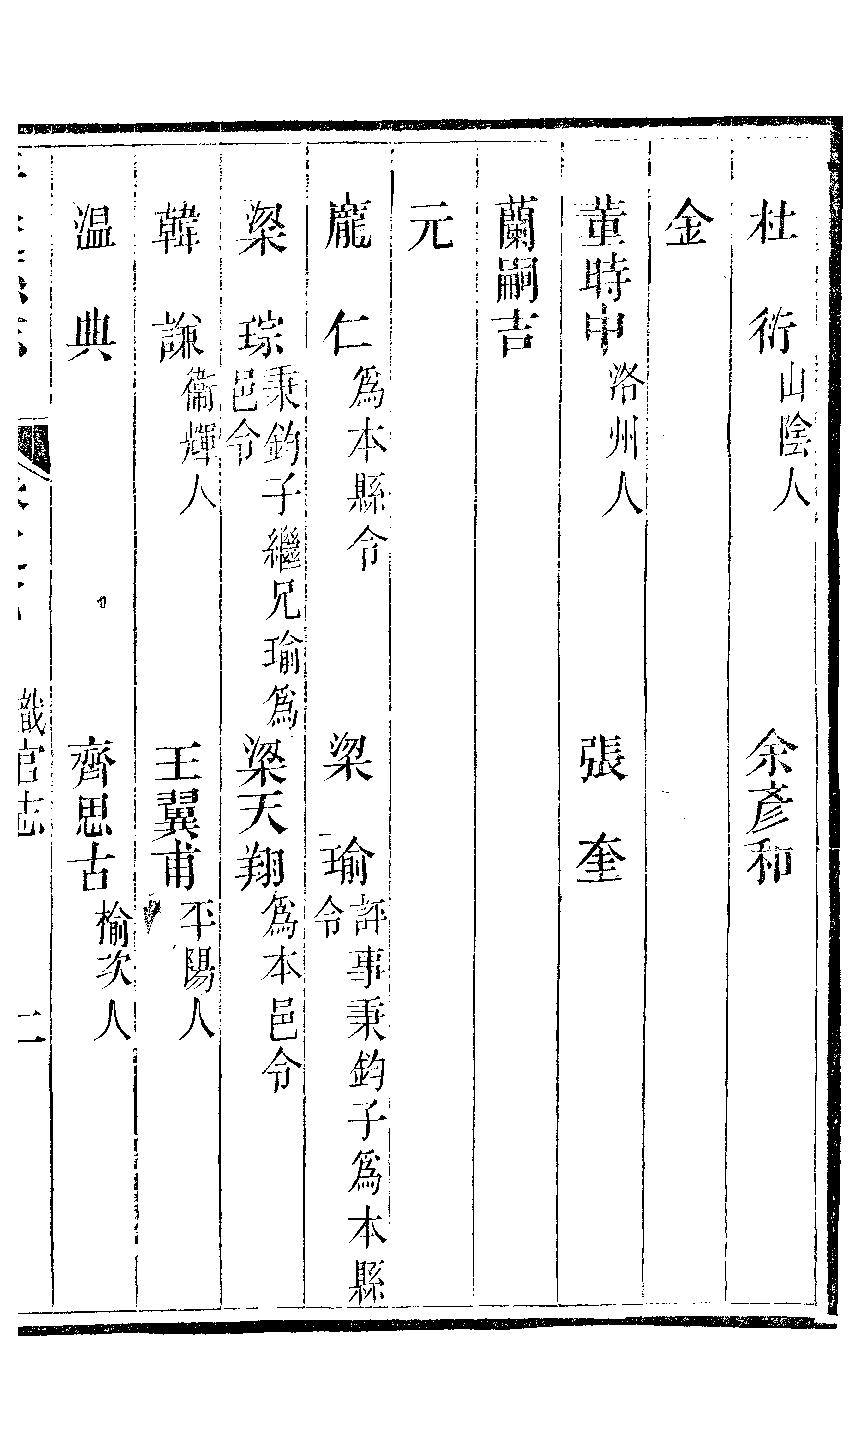 杜衍山陰人 余彥和
金
董時中洛州人 張奎
蘭嗣吉
元
龐仁為本縣令 梁瑜評事秉鈞子為本縣令
梁琮秉鈞子繼兄瑜為邑令 梁天翔為本邑令
韓謙衞輝人 王翼甫平陽人
溫典 齊思古榆次人
職官志 二